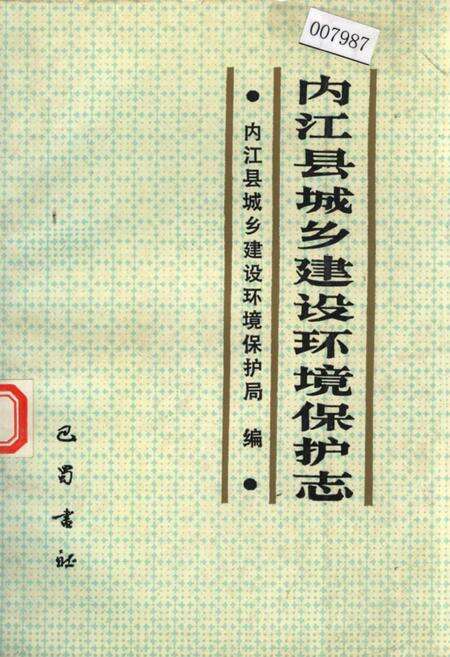 007987
内江县城乡建设环境保护志
内江县城乡建设环境保护局 编
巴蜀書社